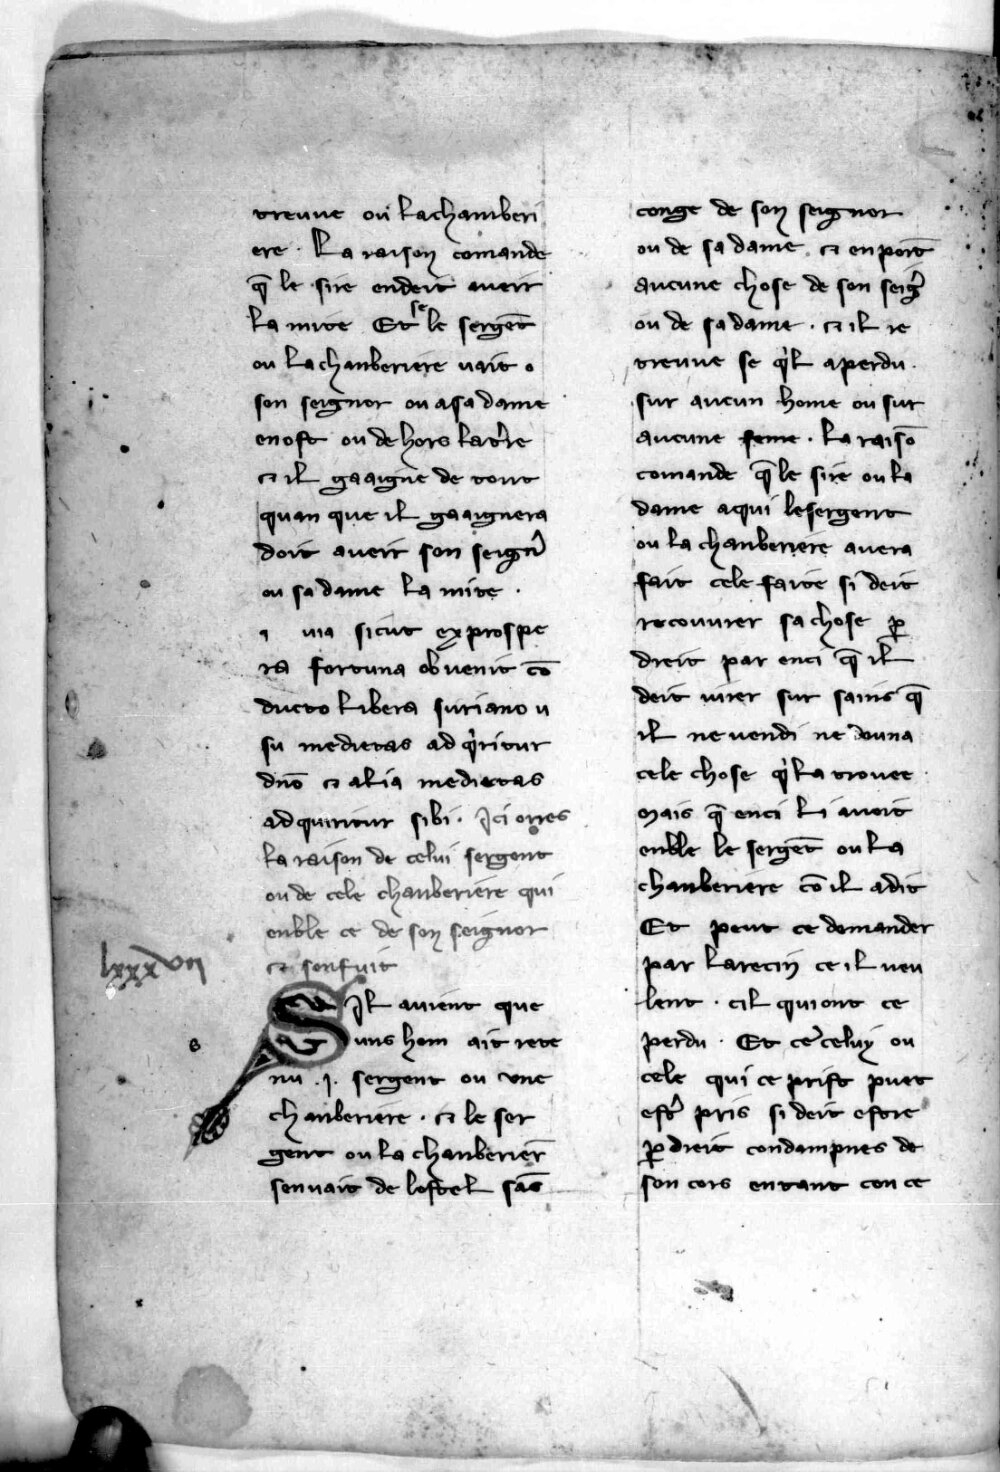 treuve ou la chamberi
ere . La raison comande
q̄ le sire en deit aveir
la mite Et se le sergēt
ou la chanberiere vait o
son seignor ou a sa dame
en ost ou de hors la t̾re
et il gaaigne de tout
quan que il gaaignera
doit aveir son seign̾
ou sa dame la mite .
via sicut ex prospe
ra fortuna obvenit cō
ducto libera suriano v
su medietas ad q̾ritur
dn̄o et alia medietas
adquiritur sibi . Ici orres
la raison de celui sergent
ou de cele chanberiere qui
enble ce de son seignor
et sen fuit
lxxxvii
Sil avient que
uns hom ait rete
nu .j. sergent ou une
chanberiere . et le ser
gent ou la chanberier̄
sen vait de lostel sās
conge de son seignor
ou de sa dame . et en port̄
aucune chose de son seig̾
ou de sa dame . et il re
treuve se q̾l a perdu .
sur aucun home ou sur
aucune feme . la raisō
comande q̄ le sire ou la
dame a qui le sergent
ou la chanberiere avera
fait cele faite si deit
recouvrer sa chose ꝑ
dreit par enci q̄ il
deit jurer sur sains q̄
il ne vendi ne douna
cele chose q̾ la trovee .
mais q̄ enci li avoit
enble le sergēt ou la
chanberiere cō il a dit
Et peut ce demander
par larecin ce il veu
lent . cil qui ont ce
perdu . Et ce celuy ou
cele qui ce prist puet
est̾ pris si deit estre
ꝑ dreit condampnes de
son cors en tant con ce